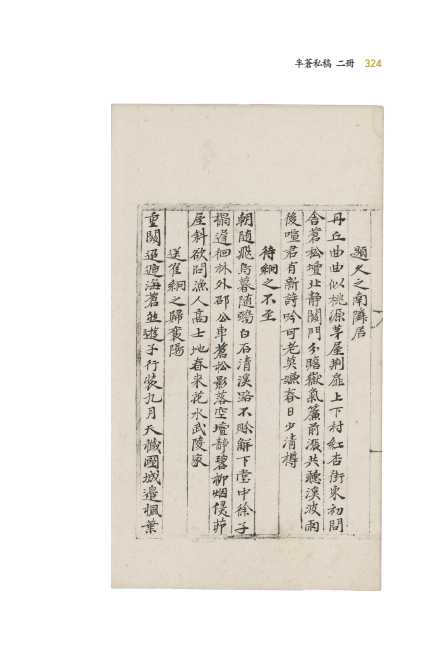 半蒼私稿 二冊 324
題久之南隣居
丹丘曲曲似桃源茅屋荊扉上下村紅杏街東初問
舍蒼松壇北靜門夕陪嶽氣簾前漲共聽溪波雨
後喧君有新詩吟可老莫嫌春日少清樽
待絅之不至
朝隨飛鳥暮隨鴉白石清溪路不賖解下堂中徐子
榻遲徊林外邵公車蒼松影落空壇靜碧柳烟侵茆
屋斜欲問漁人高士地春來花水武陵家
送崔絅之歸襄陽
重關迢遞海蒼遊子行裝九月天國城邊楓葉